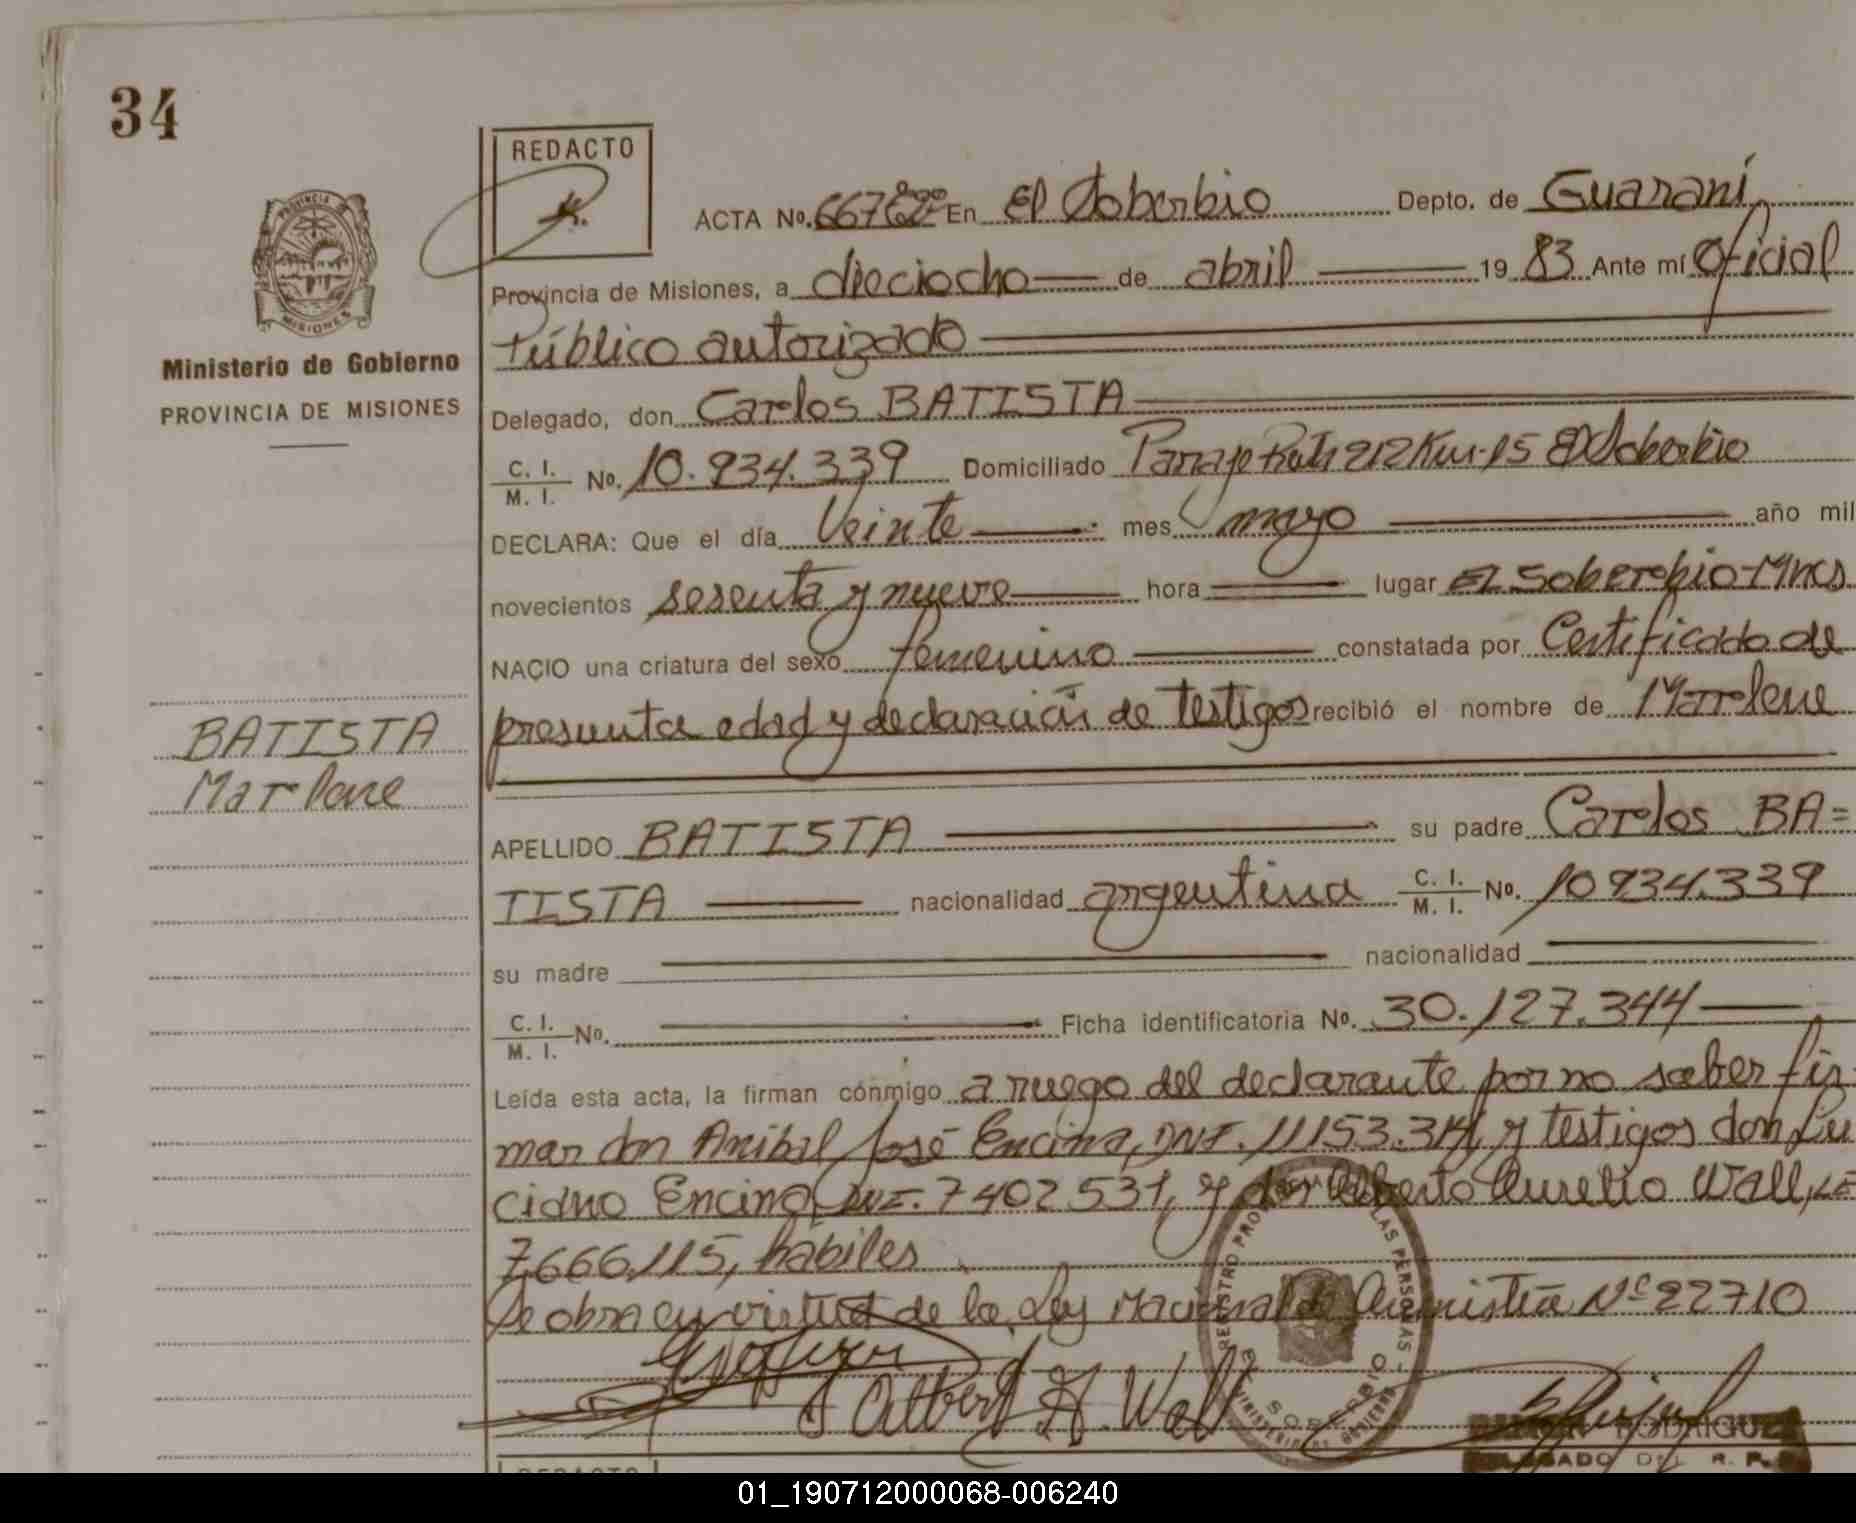 34
REDACTO
ACTA No. 667 En El Soberbio Depto. de Guaraní
Provincia de Misiones, a dieciocho de abril 19 83 Ante mí Oficial
Público autorizado
Delegado, don Carlos BATISTA
C. I.
M. I. No. 10.934.339 Domiciliado Paraje Ruta 212 Km. 15 El Soberbio
DECLARA: Que el día Veinte mes mayo año mil
novecientos sesenta y nueve hora lugar El Soberbio-Mnes
NACIO una criatura del sexo femenino constatada por Certificado de
presunta edad y declaración de testigos recibió el nombre de Marlene
APELLIDO BATISTA su padre Carlos BA=
TISTA nacionalidad argentina C. I.
M. I. No. 10934.339
su madre nacionalidad
C. I.
M. I. No. Ficha identificatoria No. 30.127.344
Leída esta acta, la firman conmigo a ruego del declarante por no saber fir-
mar don Anibal José Encina, DNI. 11153.314, y testigos don Lu
ciano Encina, DNI. 7402531, y don Alberto Aurelio Wall, LE
7.666.115, habiles
Se obra en virtud de la Ley Nacional de Amnistía Nº 22710
Albert A. Wall
PROVINCIA DE MISIONES
Ministerio de Gobierno
PROVINCIA DE MISIONES
BATISTA
Marlene
REGISTRO PROVINCIAL DE LAS PERSONAS
EL SOBERBIO
MINISTERIO DE GOBIERNO
RODRIGUEZ
DELEGADO DEL R. P.
REDACTO
01_190712000068-006240